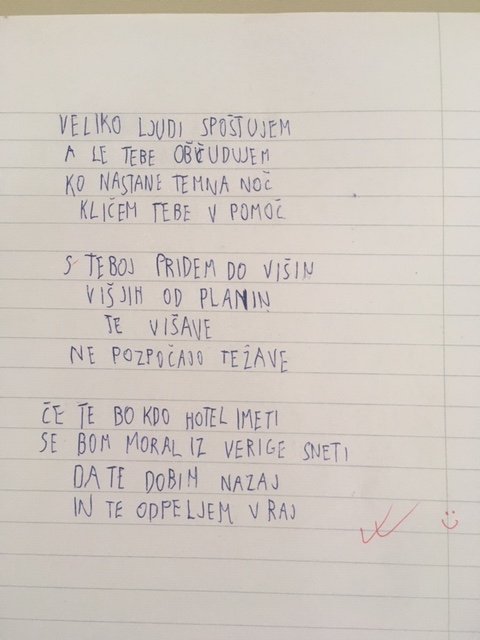 VELIKO LJUDI SPOŠTUJEM
A LE TEBE OBČUDUJEM
KO NASTANE TEMNA NOČ
KLIČEM TEBE V POMOČ
S TEBOJ PRIDEM DO VIŠIN
VIŠJIH OD PLANIN
TE VIŠAVE
NE POZPOČAJO TEŽAVE
ČE TE BO KDO HOTEL IMETI
SE BOM MORAL IZ VERIGE SNETI
DA TE DOBIM NAZAJ
IN TE ODPELJEM V RAJ